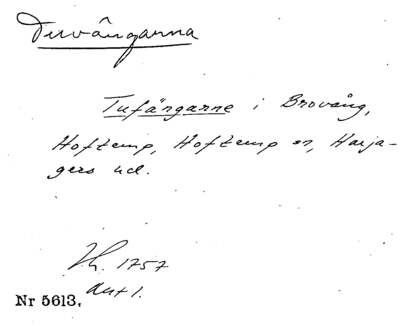 Tuvångarna
Tufängarne i Brovång,
Hoftemp, Hoftemp sn, Harja-
gers hd.
Jh. 1757
akt 1.
Nr 5613.